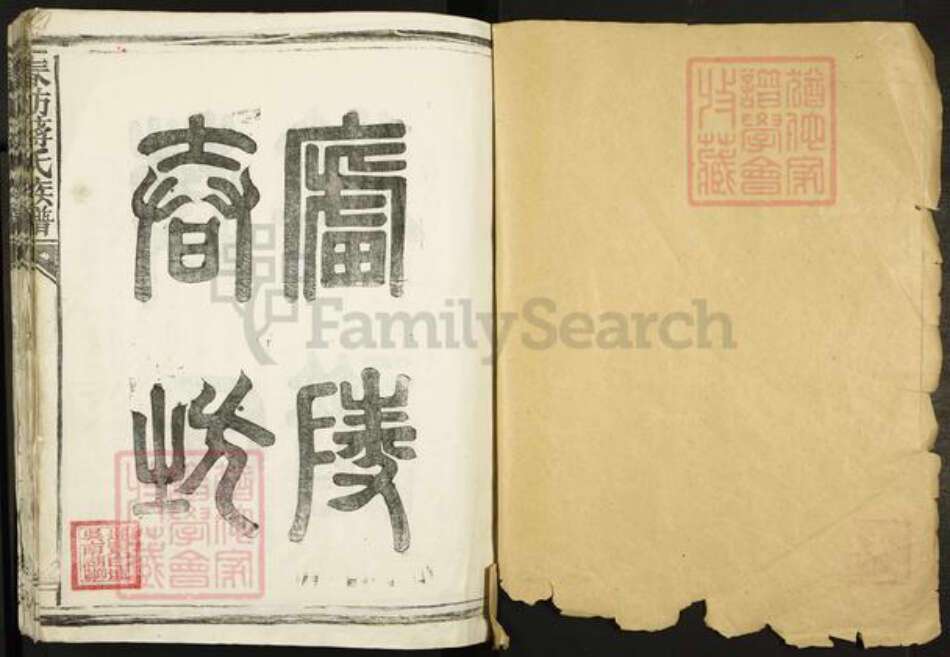 猶他家
譜學會
收藏
廬陵
春坊
春坊蔣氏族譜
猶他家
譜學會
收藏
FamilySearch